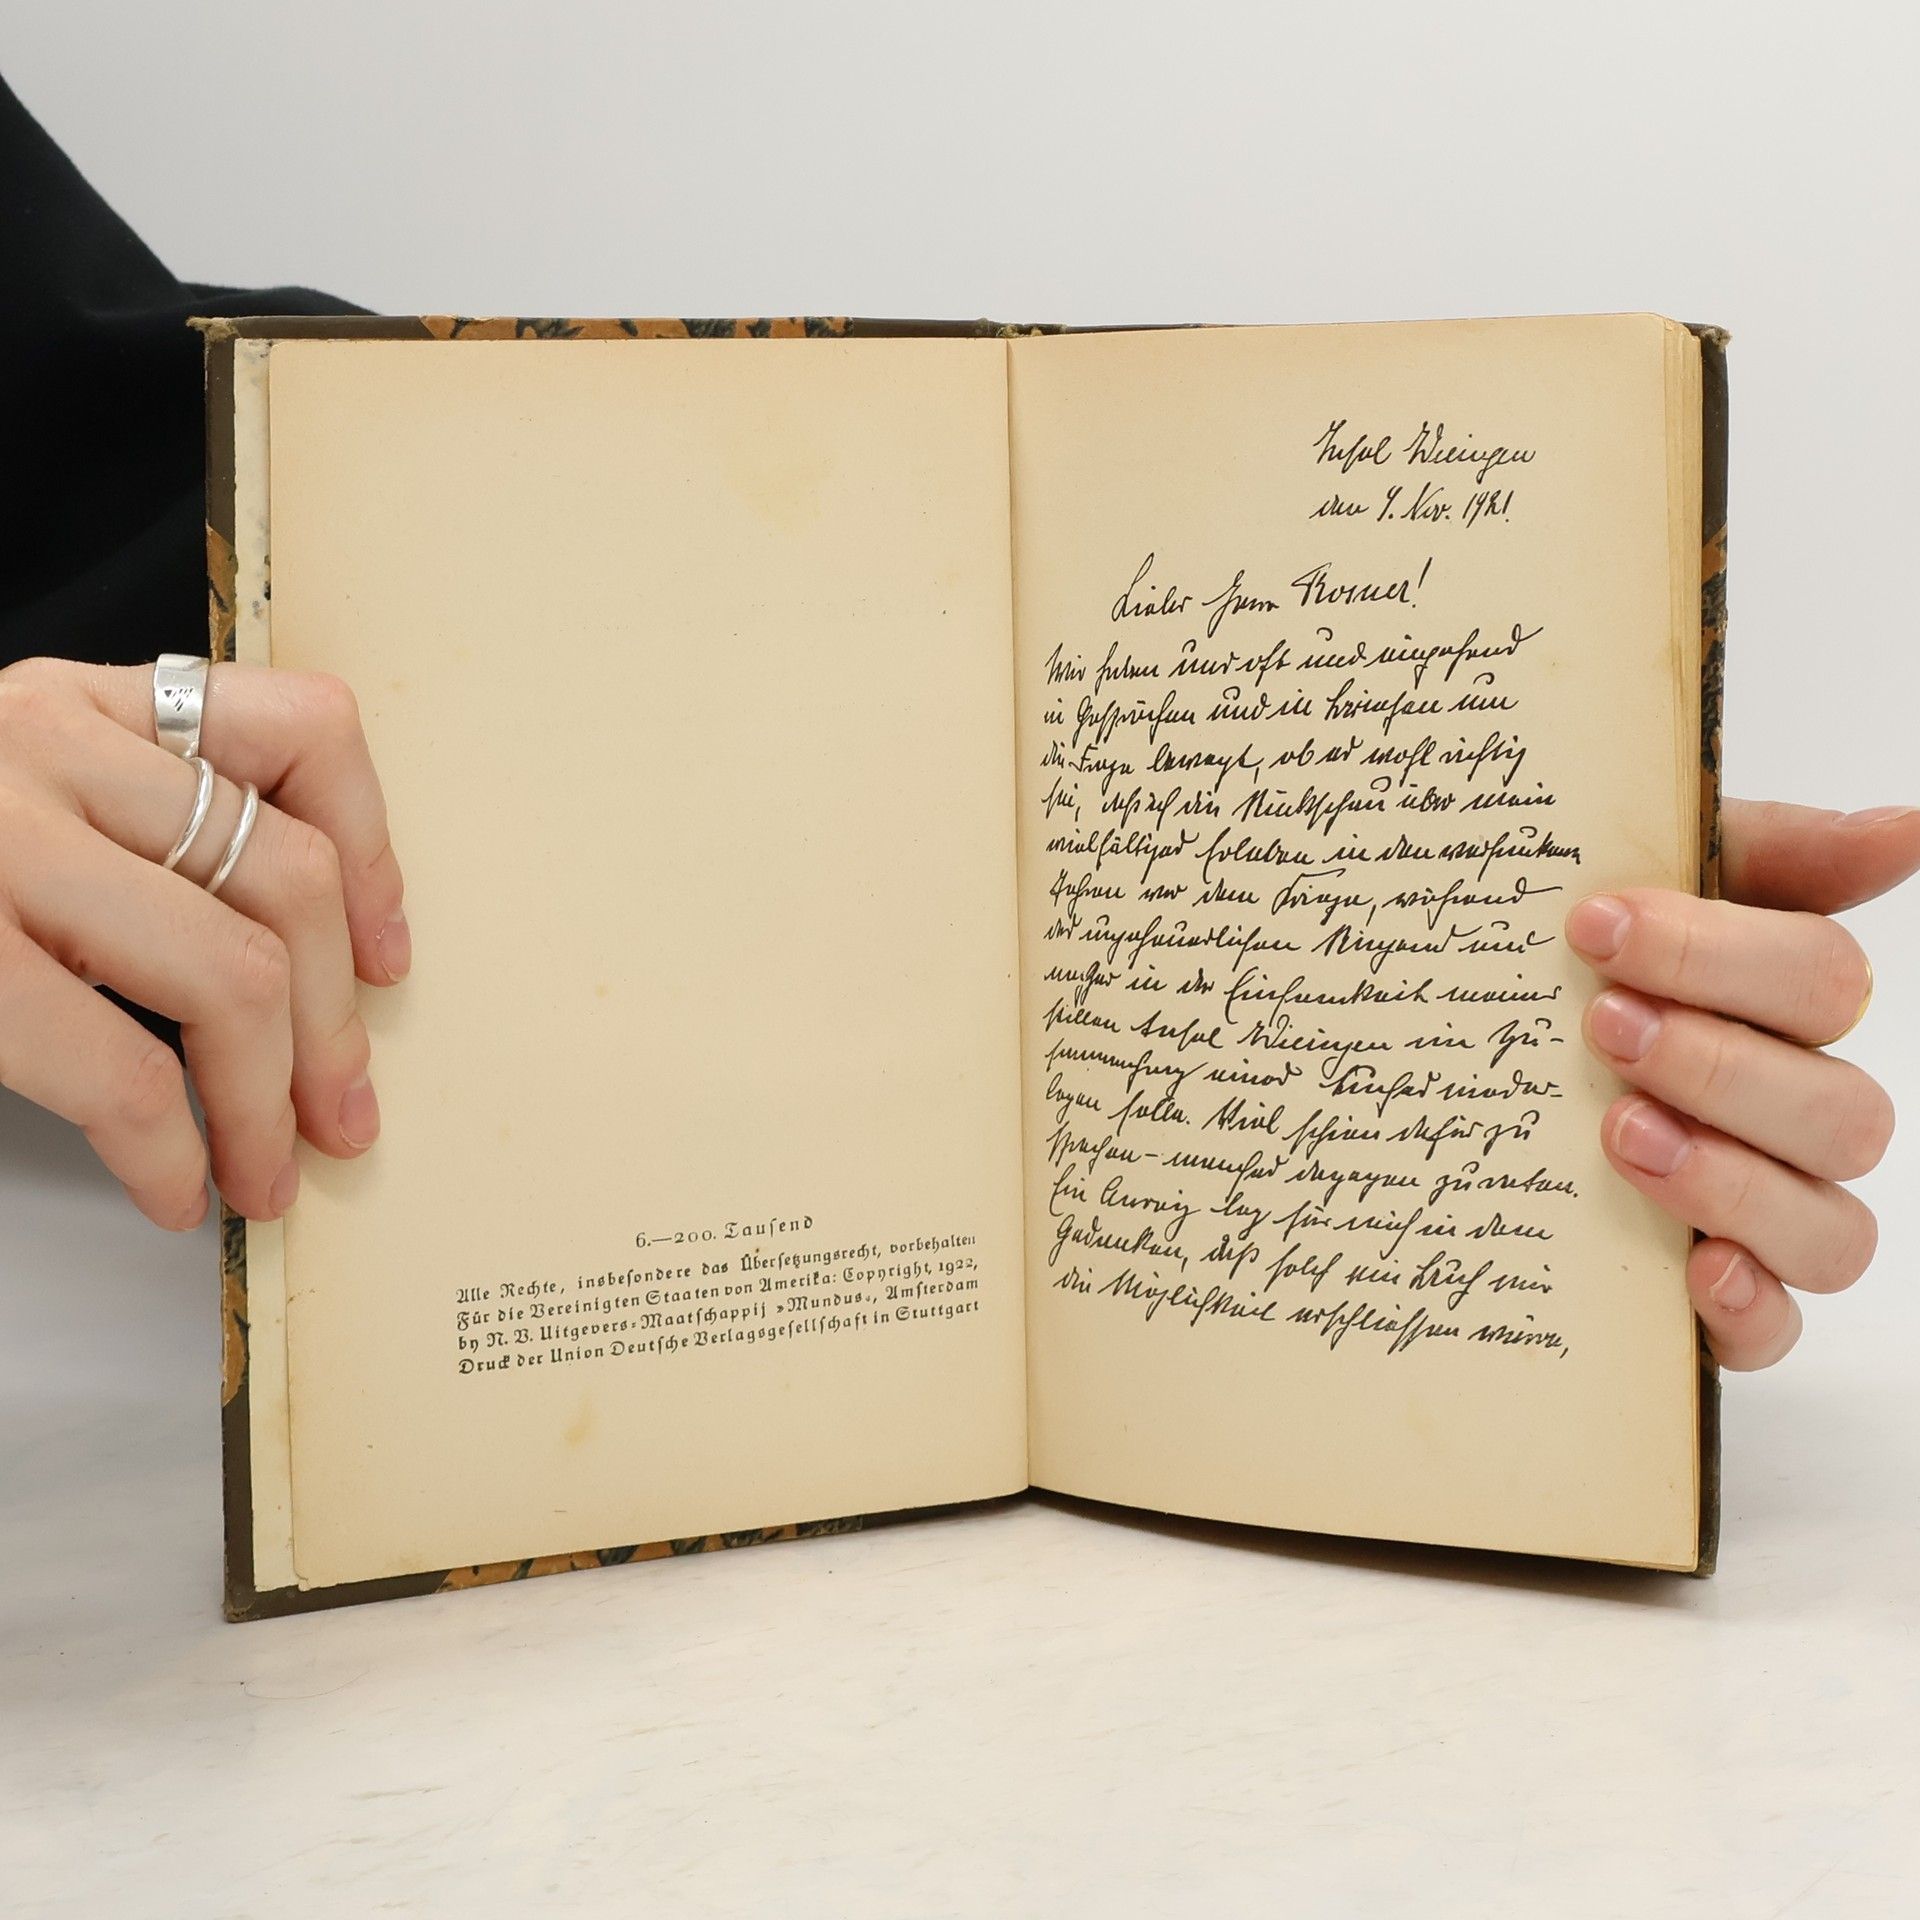 6.—200. Tauſend
Alle Rechte, insbeſondere das Überſetzungsrecht, vorbehalten
Für die Vereinigten Staaten von Amerika: Copyright, 1922,
by N. V. Uitgevers-Maatſchappij »Mundus«, Amſterdam
Druck der Union Deutſche Verlagsgeſellſchaft in Stuttgart
Insel Wieringen
den 4. Nov. 1921.
Lieber Herr Rosner!
Wir haben uns oft und eingehend
in Gesprächen und in Briefen um
die Frage bewegt, ob es wohl richtig
sei, daß ich die Rückschau über mein
vielfältiges Erleben in den versunkenen
Jahren vor dem Kriege, während
des ungeheuerlichen Ringens und
nachher in der Einsamkeit meiner
stillen Insel Wieringen im Zu-
sammenhang eines Buches nieder-
legen solle. Viel schien dafür zu
sprechen – manches dagegen zu raten.
Ein Anreiz lag für mich in dem
Gedanken, daß solch ein Buch mir
die Möglichkeit erschliessen würde,